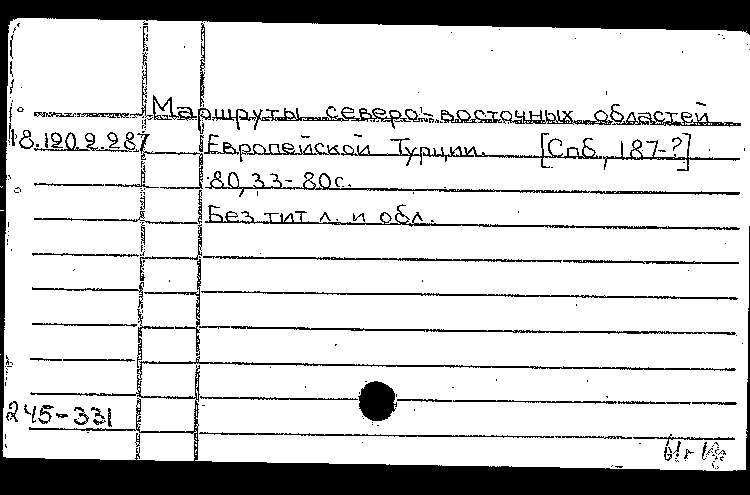 Маршруты северо-восточных областей
18.120.2.287 Европейской Турции. [Спб, 187-?]
80, 33-80с.
Без тит л. и обл.
245-331